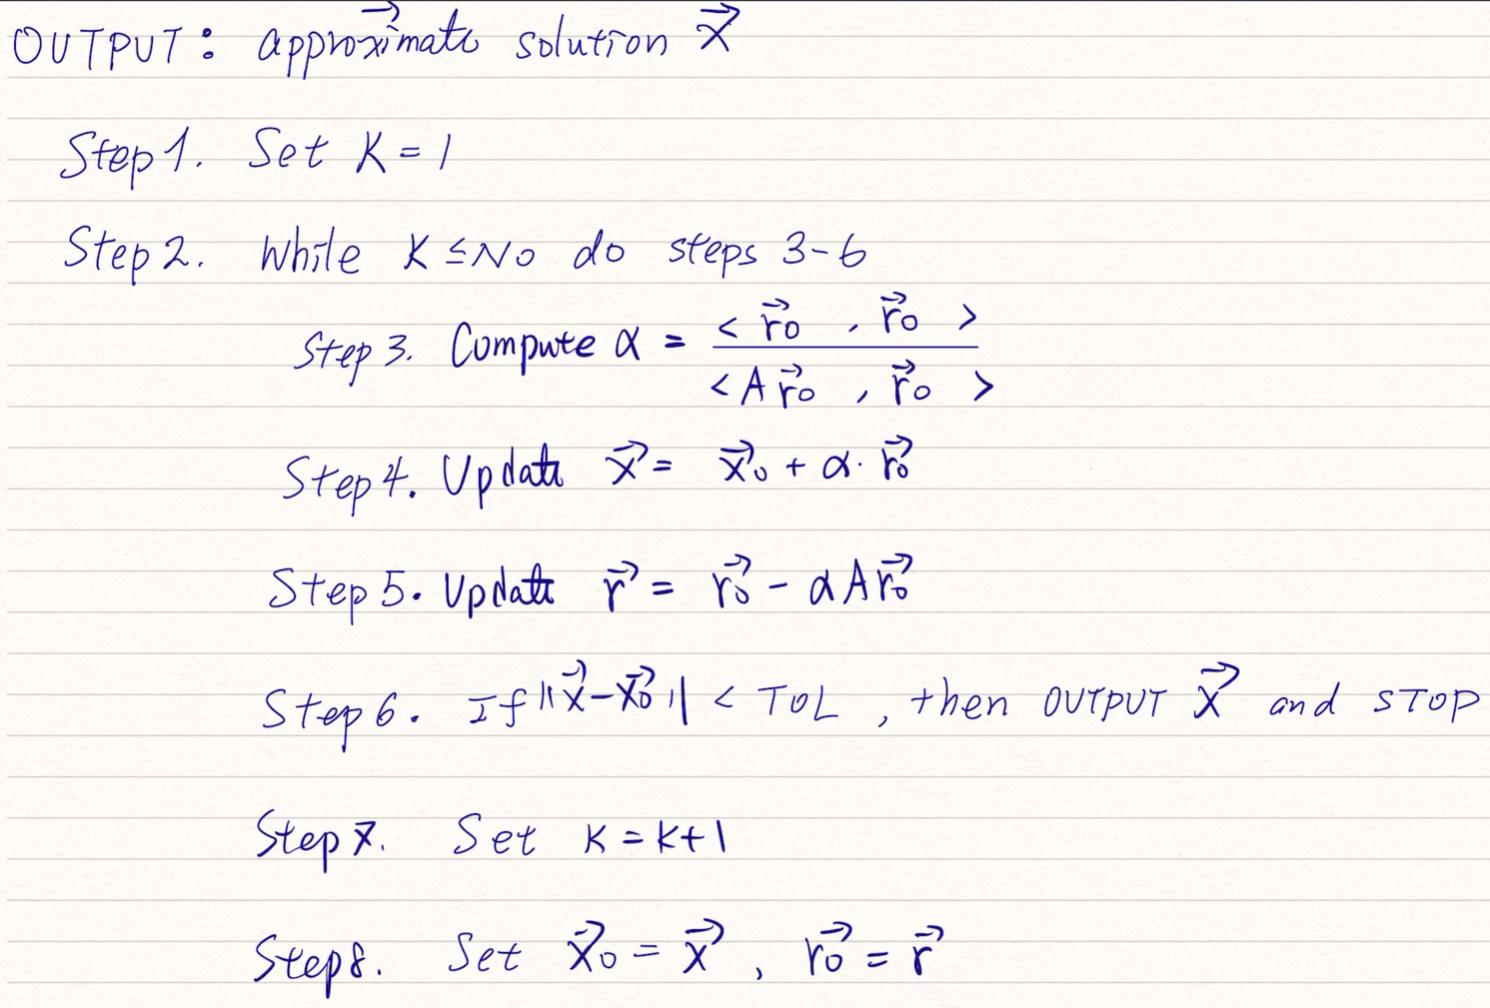 OUTPUT: approximate solution x⃗
Step 1. Set K = 1
Step 2. While K ≤ No do steps 3-6
Step 3. Compute α = < r⃗0 , r⃗0 > / < A r⃗0 , r⃗0 >
Step 4. Update x⃗ = x⃗0 + α · r⃗0
Step 5. Update r⃗ = r⃗0 - α A r⃗0
Step 6. If ||x⃗ - x⃗0|| < TOL , then OUTPUT x⃗ and STOP
Step 7. Set K = K+1
Step 8. Set x⃗0 = x⃗ , r⃗0 = r⃗